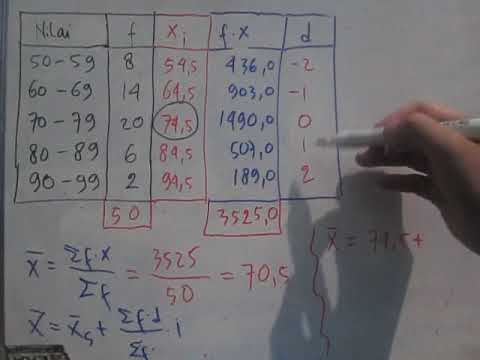 Nilai f Xi f.x d
50-59 8 54,5 436,0 -2
60-69 14 64,5 903,0 -1
70-79 20 74,5 1490,0 0
80-89 6 84,5 507,0 1
90-99 2 94,5 189,0 2
50 3525,0
X̄ = Σf.x / Σf = 3525 / 50 = 70,5
X̄ = 74,5+
X̄ = X̄s + Σf.d / Σf. i